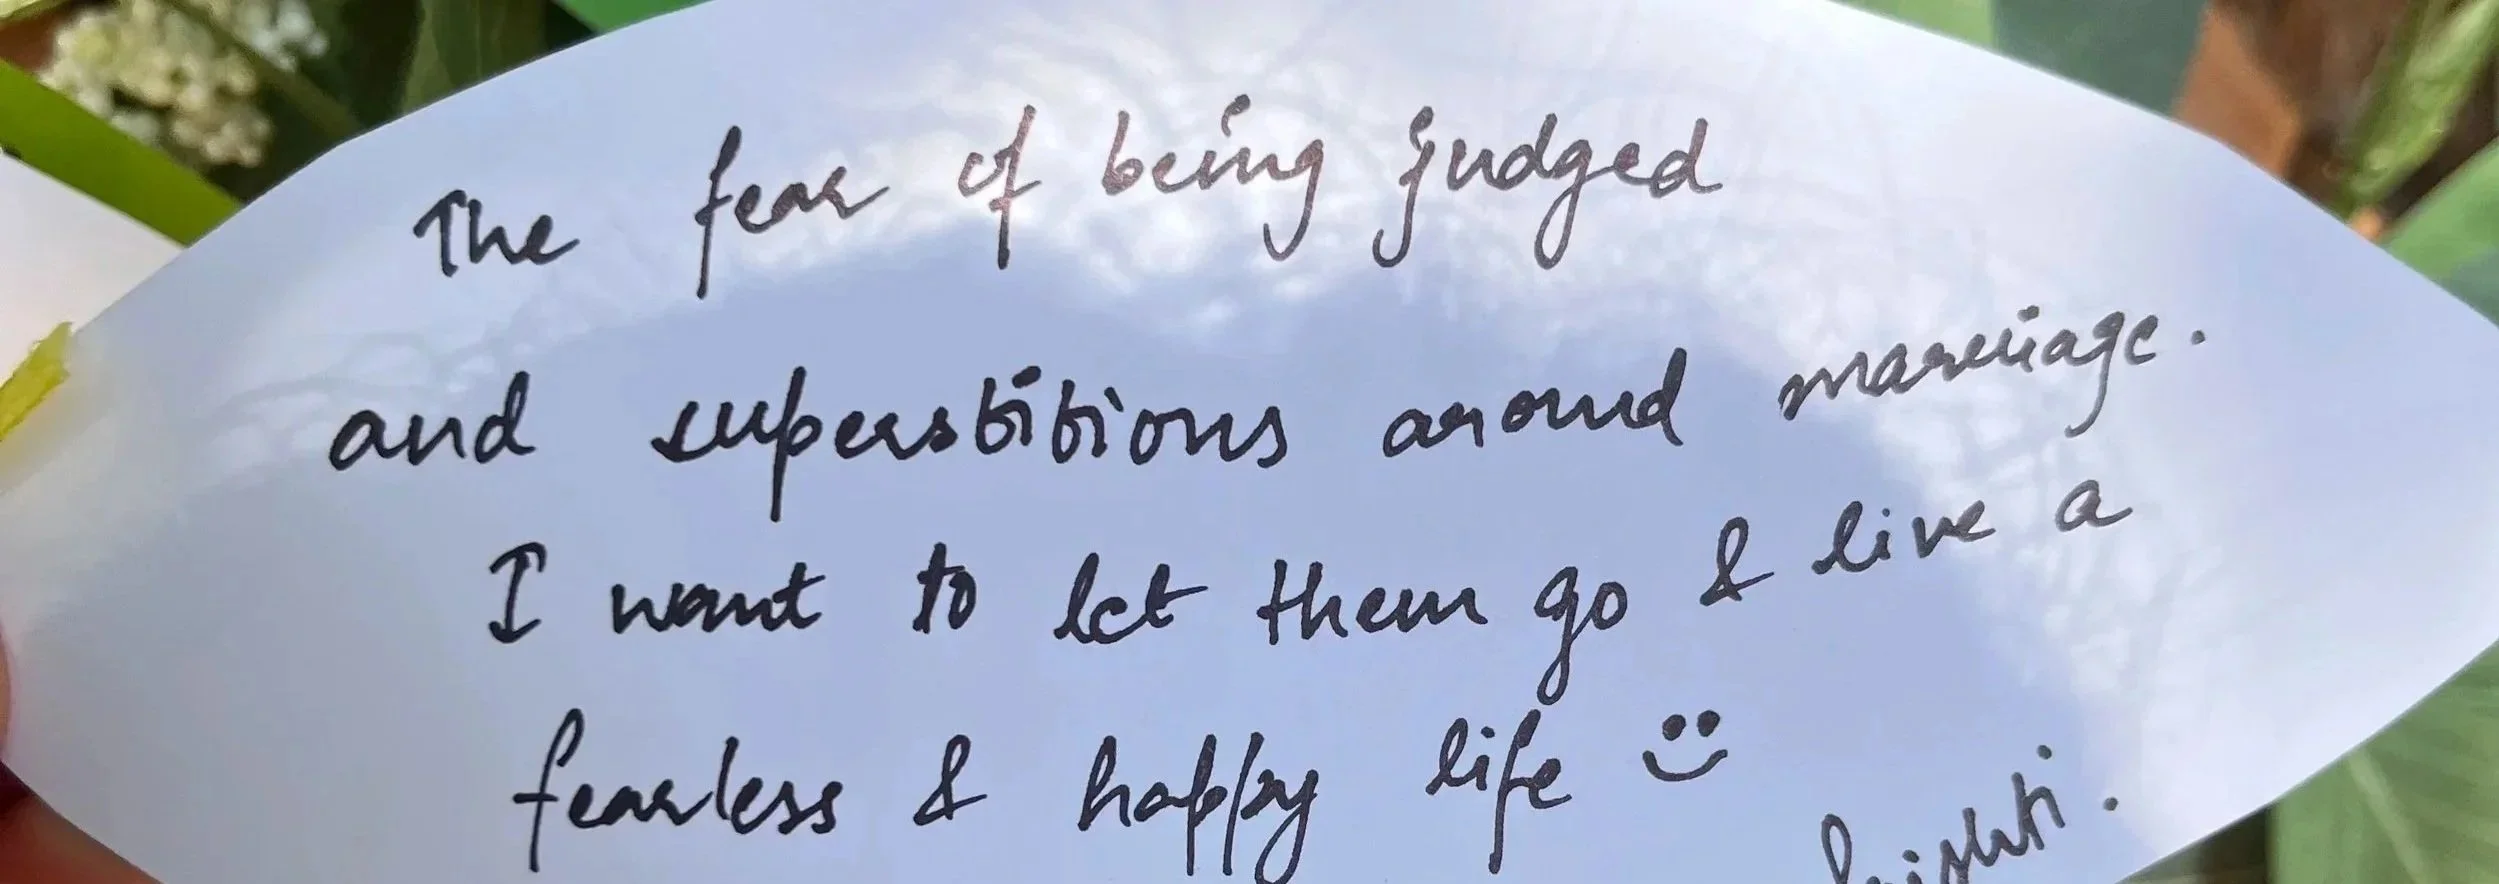 The fear of being judged
and superstitions around marriage.
I want to let them go & live a
fearless & happy life ☺